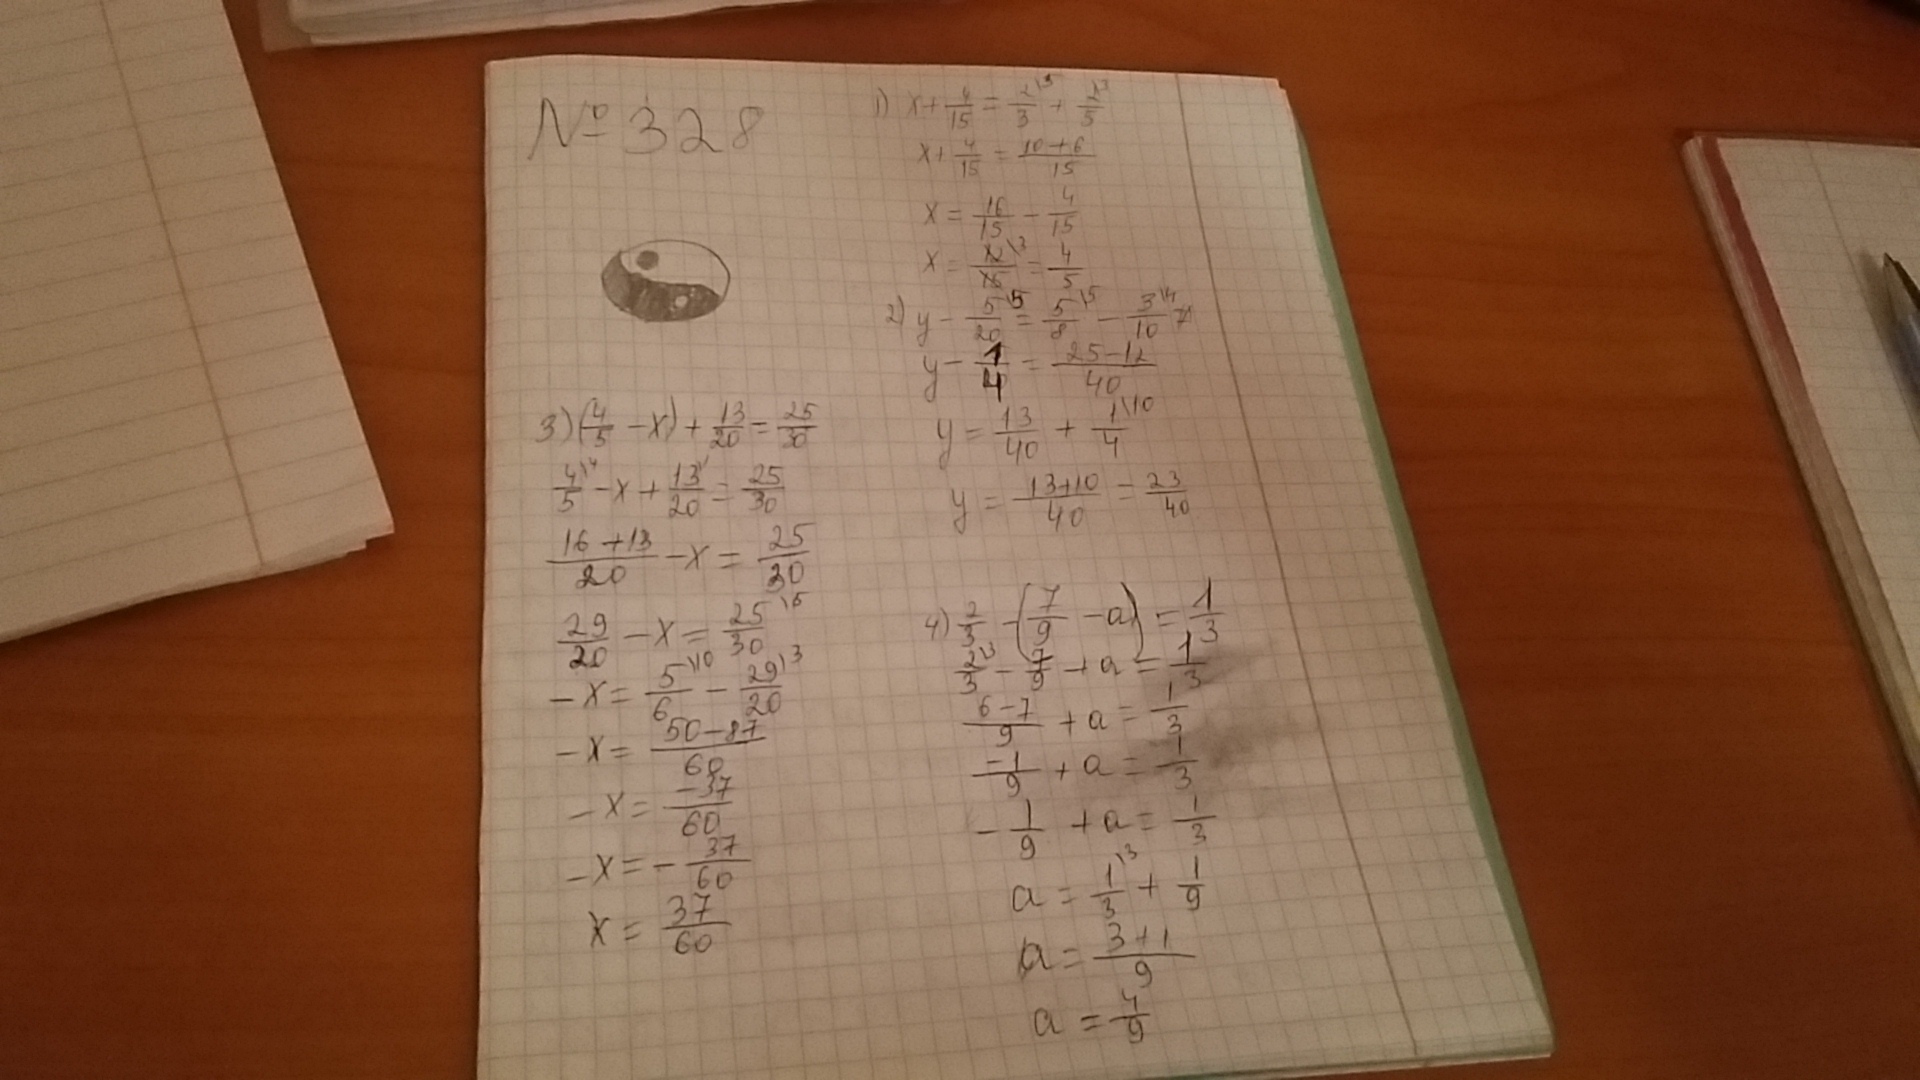 № 328
1) x + 4/15 = 2/3\5 + 2/5\3
x + 4/15 = 10+6/15
x = 16/15 − 4/15
x = 12/15\3 = 4/5
2) y − 5/20\5 = 5/8\5 − 3/10\4
y − 1/4 = 25−12/40
y = 13/40 + 1/4\10
y = 13+10/40 = 23/40
3) (4/5 − x) + 13/20 = 25/30
4/5\4 − x + 13/20\1 = 25/30
16+13/20 − x = 25/30
29/20 − x = 25/30\5
−x = 5/6\10 − 29/20\3
−x = 50−87/60
−x = −37/60
−x = − 37/60
x = 37/60
4) 2/3 − (7/9 − a) = 1/3
2/3\3 − 7/9 + a = 1/3
6−7/9 + a = 1/3
−1/9 + a = 1/3
− 1/9 + a = 1/3
a = 1/3\3 + 1/9
a = 3+1/9
a = 4/9